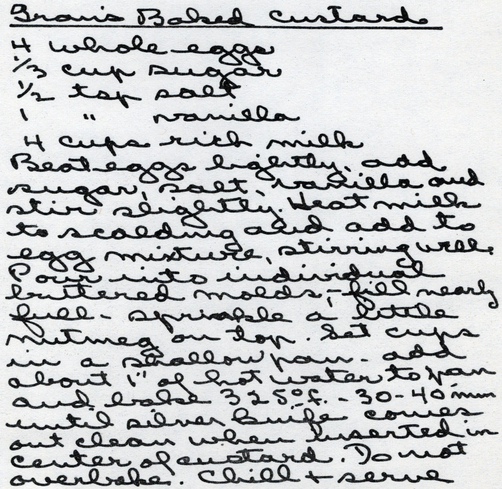 Gran's Baked Custard
4 whole eggs
1/3 cup sugar
1/2 tsp salt
1 " vanilla
4 cups rich milk
Beat eggs lightly, add
sugar, salt, vanilla and
stir slightly. Heat milk
to scalding and add to
egg mixture, stirring well.
Pour into individual
buttered molds, - fill nearly
full - sprinkle a little
nutmeg on top. Set cups
in a shallow pan - add
about 1" of hot water to pan
and bake 325°f. - 30-40 min
until silver knife comes
out clean when inserted in
center of custard. Do not
overbake. Chill + serve